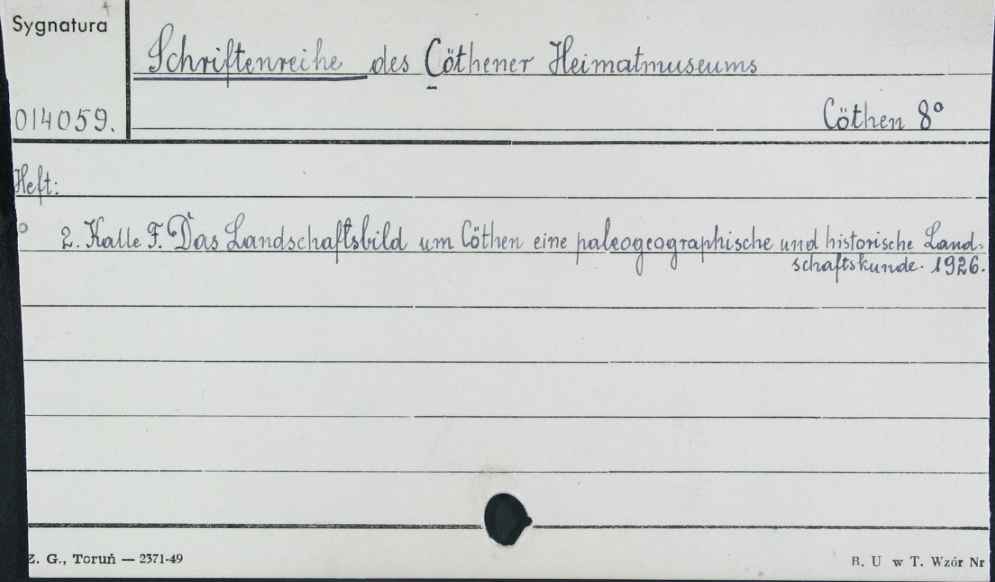 Sygnatura
Schriftenreihe des Cöthener Heimatmuseums
014059.
Cöthen 8°
Heft:
° 2. Kalle F. Das Landschaftsbild um Cöthen eine paleogeographische und historische Land-
schaftskunde. 1926.
Z. G., Toruń — 2371-49
B. U w T. Wzór Nr